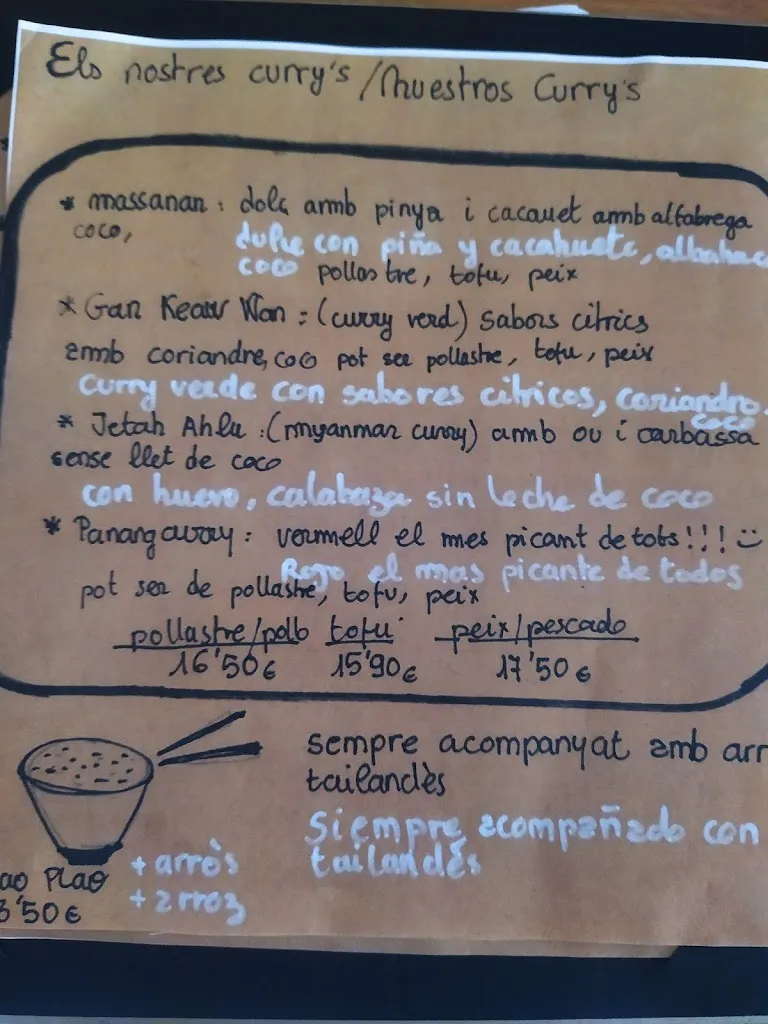 Els nostres curry's / Nuestros Curry's
* massanan: dolç amb pinya i cacauet amb alfabrega
coco,
dulce con piña y cacahuete, albahac
coco pollastre, tofu, peix
* Gan Keaw Wan: (curry verd) sabors citrics
amb coriandre, coco pot ser pollastre, tofu, peix
curry verde con sabores citricos, coriandro.
coco
* Jetah Ahlu: (myanmar curry) amb ou i carbassa
sense llet de coco
con huevo, calabaza sin leche de coco
* Panang curry: vermell el mes picant de tots!!! :)
Rojo el mas picante de todos
pot ser de pollastre, tofu, peix
pollastre/pollo tofu peix/pescado
16'50€ 15'90€ 17'50€
sempre acompanyat amb arr
tailandès
Siempre acompañado con
tailandés
ao Plao
+ arròs
3'50€
+ arroz